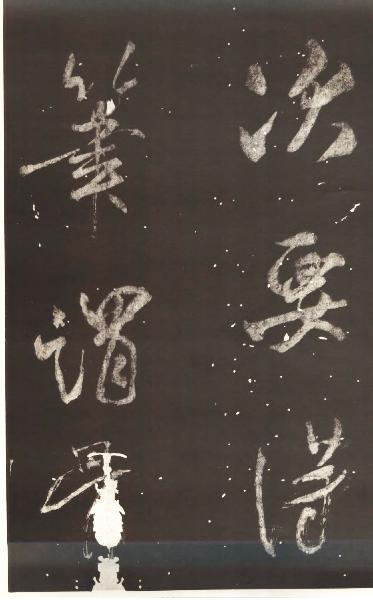 次要得
筆謂